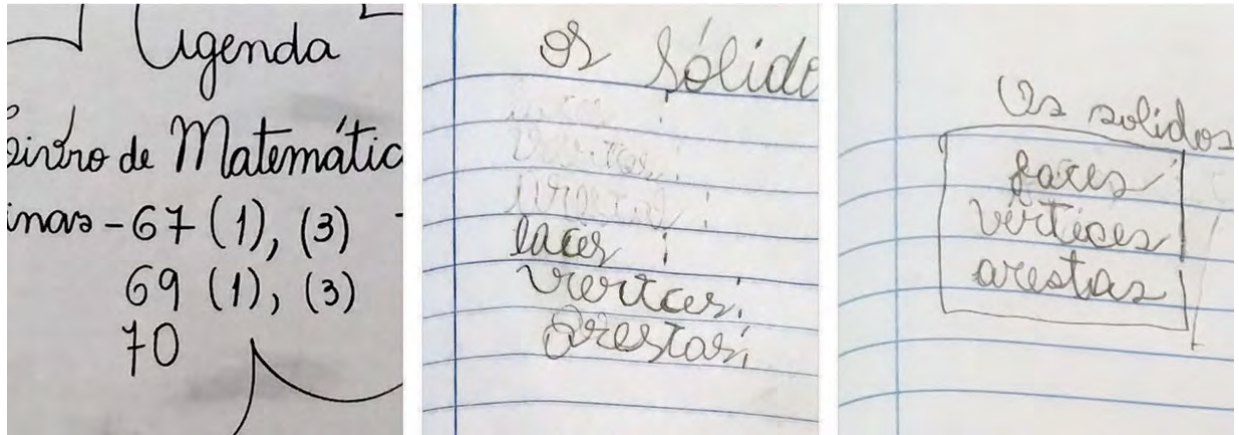 Agenda
de Matemátic
67 (1), (3)
69 (1), (3)
70
os sólido
faces :
vertces:
Arestas:
Os solidos
faces
vértices
arestas